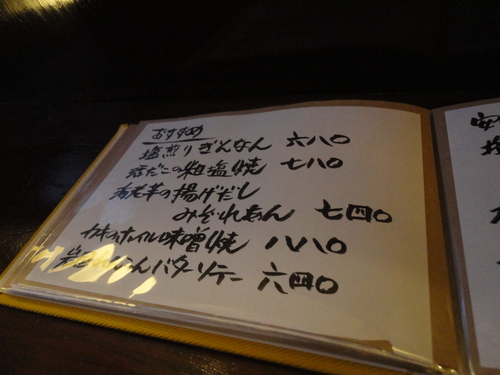 おすすめ
塩煎りぎんなん 六八〇
活だこの粗塩焼 七八〇
海老芋の揚げだし
みぞれあん 七四〇
カキのホイル味噌焼 八八〇
バターソテー 六四〇
安